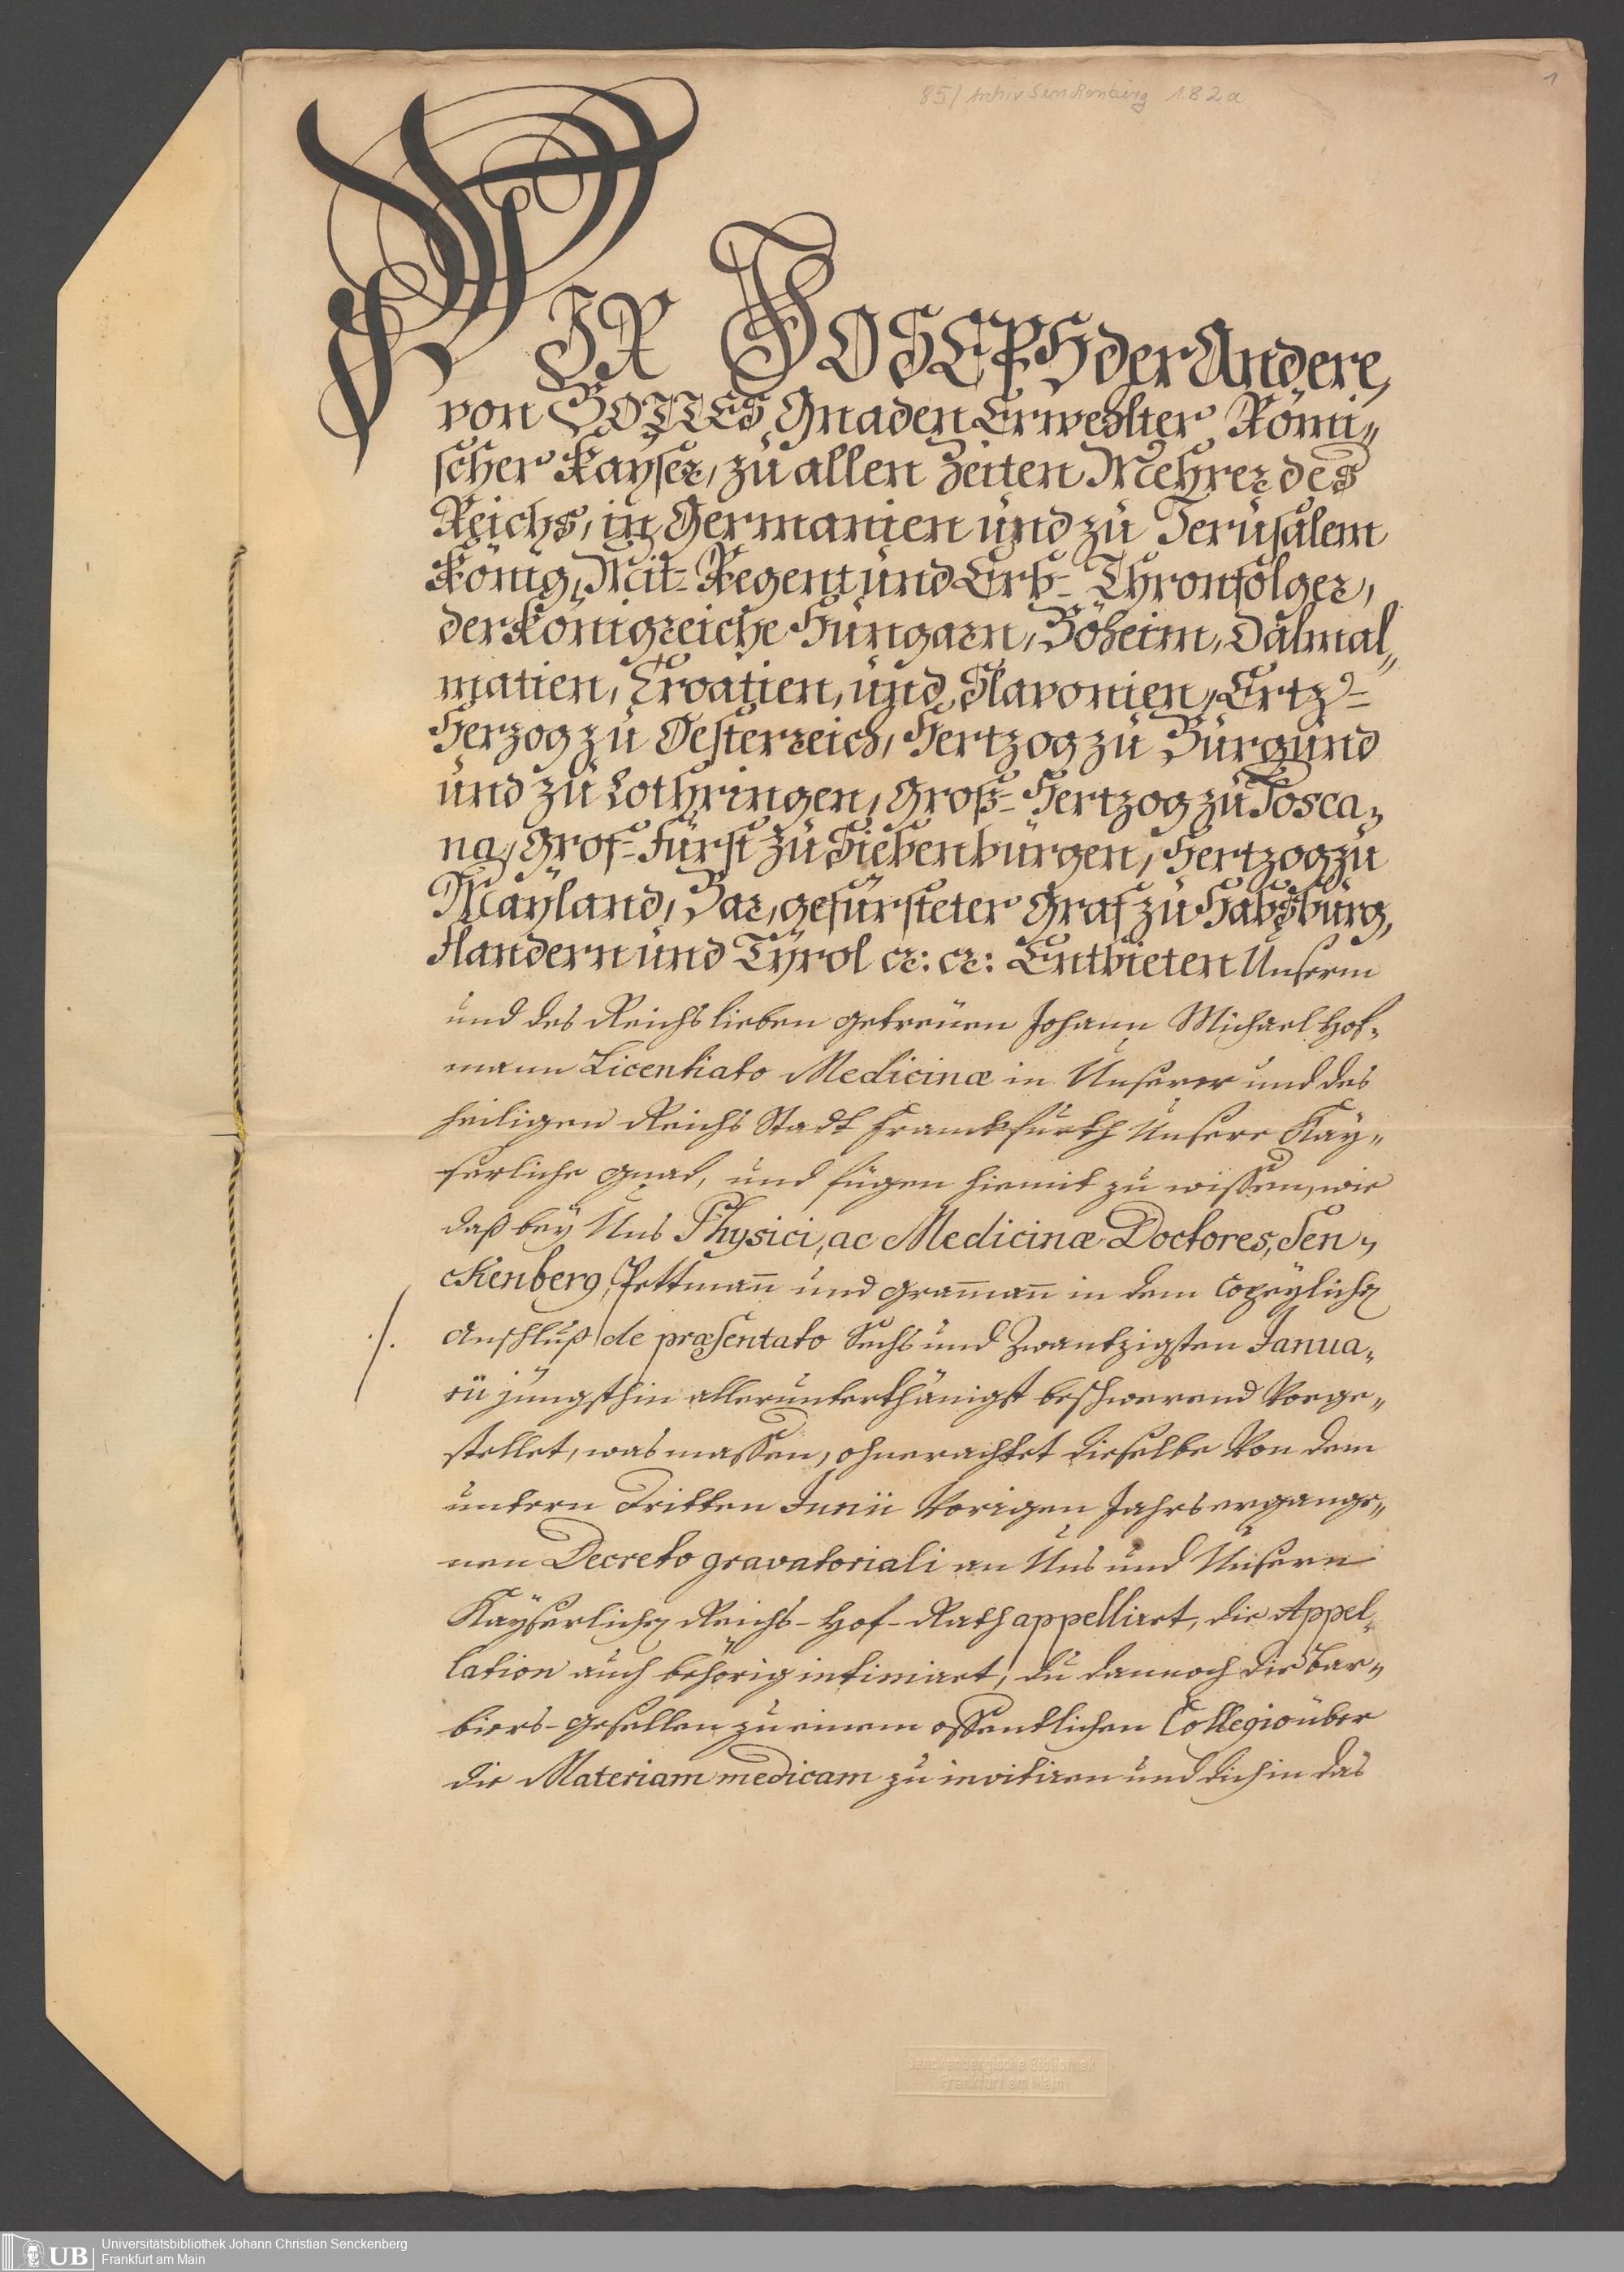 85/ Archiv Senckenberg 182a
1
WIR JOSEPH der Andere,
von GOTTES Gnaden Erwehlter Römi„
scher Kayser, zu allen Zeiten Mehrer des
Reichs, in Germanien und zu Jerusalem
König, Mit-Regent und Erb-Thronfolger,
der Königreiche Hungarn, Böheim, Dalmal„
matien, Croatien, und Slavonien, Ertz-
Herzog zu Oesterreich, Hertzog zu Burgund
und zu Lothringen, Groß-Hertzog zu Tosca„
na, Gros-Fürst zu Siebenbürgen, Hertzog zu
Mayland, Bar, gefürsteter Graf zu Habsburg,
Flandern und Tyrol ꝛc: ꝛc: Entbieten Unserm
und des Reichs lieben getreuen Johann Michael Hof„
mann Licentiato Medicinæ in Unserer und des
heiligen Reichs Stadt Franckfurth Unsere Kay„
serliche Gnad, und fügen hiemit zu wissen, wie
daß bey Uns Physici, ac Medicinæ Doctores, Sen„
ckenberg, Pettmañ und Gramañ in dem copeylichen
Anschluß de præsentato Sechs und Zwantzigsten Janua„
./.
rii jüngsthin allerunterthänigst beschwerend Vorge„
stellet, was massen, ohnerachtet dieselbe Von dem
untern Dritten Junii Vorigen Jahrs ergange„
nen Decreto gravatoriali an Uns und Unsern
Kayserlichen Reichs-Hof-Rath appelliret, die Appel„
lation auch behörig intimiret, du dannoch die Bar„
biers-gesellen zu einem offentlichen Collegio über
die Materiam medicam zu invitiren und dich in das
Senckenbergische Bibliothek
Frankfurt am Main
UB
Universitätsbibliothek Johann Christian Senckenberg
Frankfurt am Main